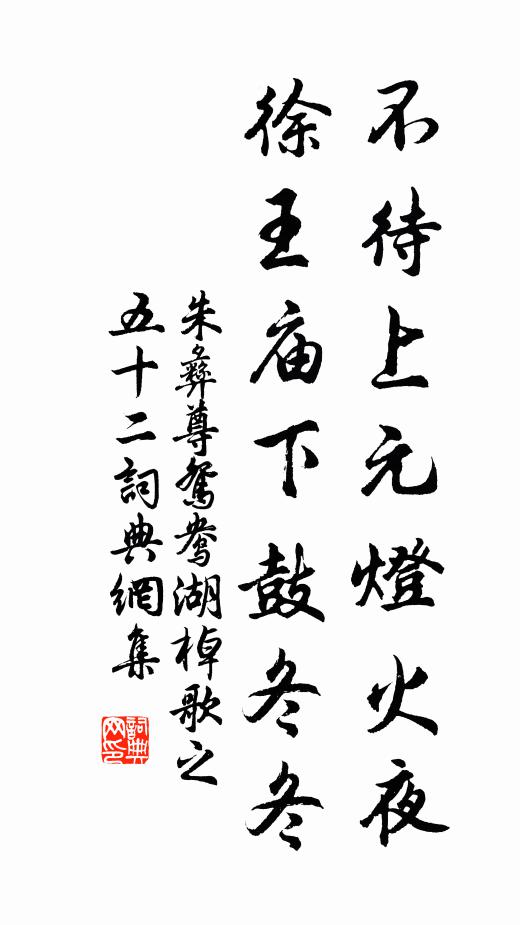 不待上元燈火夜
徐王庙下鼓冬冬
朱彝尊鴛鴦湖棹歌之
五十二詞典網集
詞典
网印